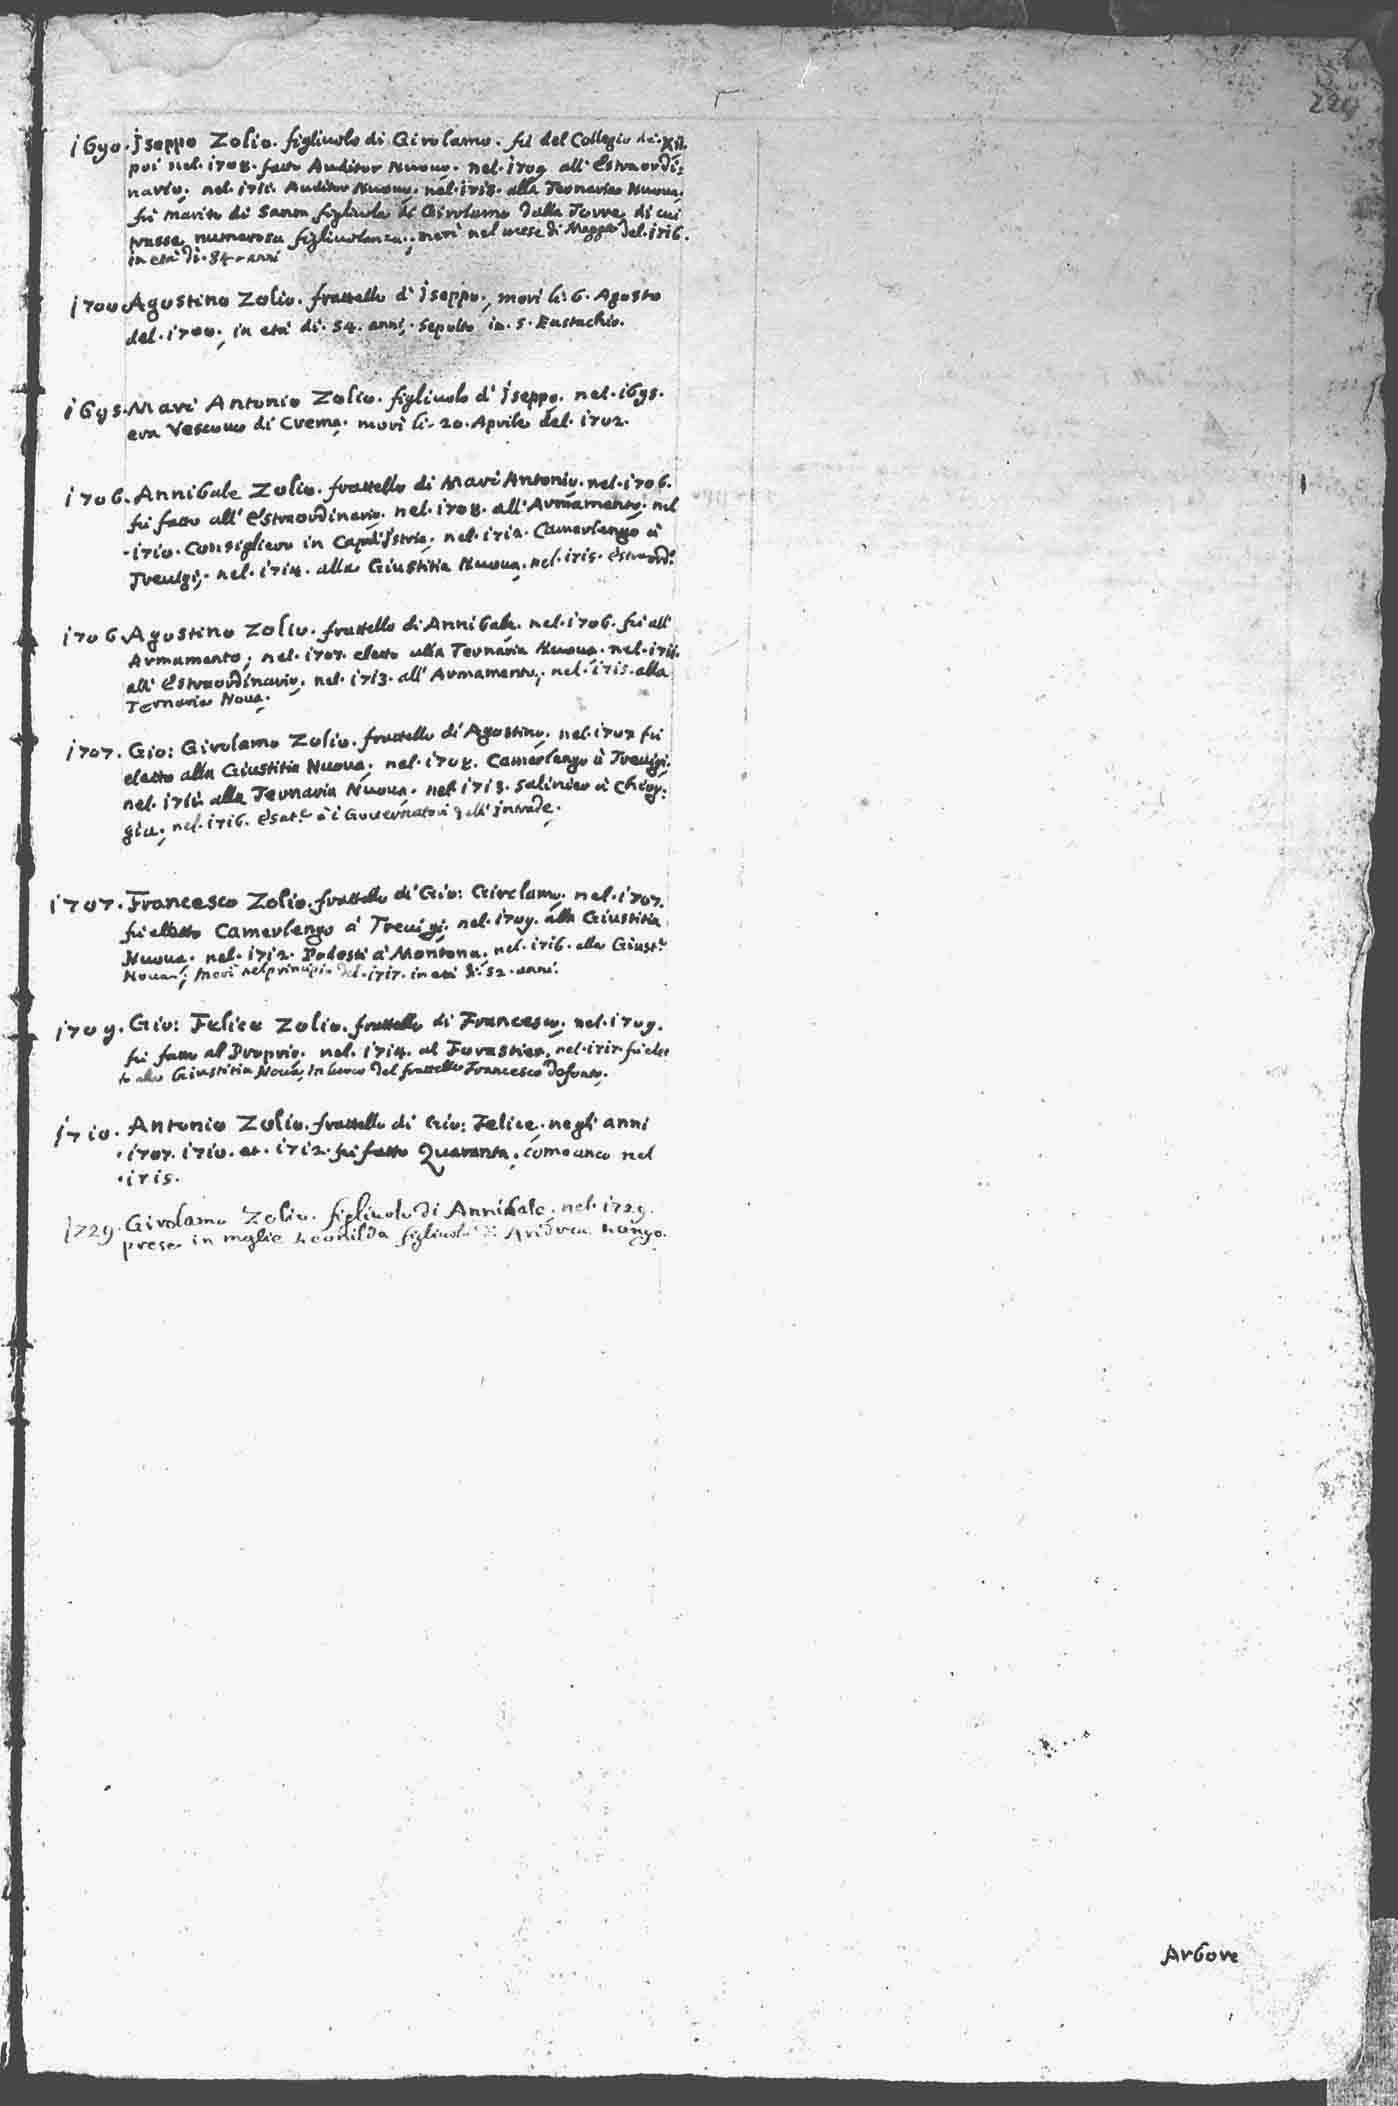 229
1690. Iseppo Zolio. figliuolo di Girolamo. fù del Collegio dei XII.
poi nel. 1708. fatto Auditor Nuovo. nel. 1709 all' Estraordi:
nario. nel. 1711. Auditor Nuovo. nel. 1713. alla Ternaria Nuova.
fù marito di Santa figliuola di Girolamo dalla Torre, di cui
trasse numerosa figliuolanza; morì nel mese di Maggio del. 1716.
in età di. 84. anni
1700. Agostino Zolio. frattello di Iseppo, morì li. 6. Agosto
del. 1700, in età di. 54. anni. sepolto in. S. Eustachio.
1695. Marc' Antonio Zolio. figliuolo di Iseppo. nel. 1695.
era Vescovo di Crema. morì li. 20. Aprile del. 1702.
1706. Annibale Zolio. frattello di Marc' Antonio. nel. 1706.
fù fatto all' Estraordinario. nel. 1708. all' Armamento. nel
. 1710. Consigliero in Capod'Istria. nel. 1712. Camerlengo à
Trevigi. nel. 1714. alla Giustitia Nuova. nel. 1715. estraord.
1706. Agostino Zolio. frattello di Annibale. nel. 1706. fù all'
Armamento; nel. 1707. eletto alla Ternaria Nuova. nel. 1711.
all' Estraordinario. nel. 1713. all' Armamento; nel. 1715. alla
Ternaria Nova.
1707. Gio: Girolamo Zolio. frattello di Agostino. nel. 1707 fù
eletto alla Giustitia Nuova. nel. 1708. Camerlengo à Trevigi.
nel. 1711. alla Ternaria Nuova. nel. 1713. Salinier à Chiog:
gia, nel. 1716. Esat.r à i Governatori dell' Intrade.
1707. Francesco Zolio. frattello di Gio: Girolamo. nel. 1707.
fù eletto Camerlengo à Trevigi. nel. 1709. alla Giustitia
Nuova. nel. 1712. Podestà à Montona. nel. 1716. alla Giust.a
Nova; morì nel principio del. 1717. in età di. 52. anni.
1709. Gio: Felice Zolio. frattello di Francesco. nel. 1709.
fù fatto al Proprio. nel. 1714. al Forastier, nel. 1717. fù elet
to alla Giustitia Nova, in luoco del frattello Francesco defonto.
1710. Antonio Zolio. frattello di Gio: Felice. negli anni
. 1707. 1710. et. 1712. fù fatto Quaranta. come anco nel
. 1715.
1729. Girolamo Zolio. figliuolo di Annibale. nel. 1729.
prese in moglie Leonilda figliuola di Andrea Longo.
Arbore